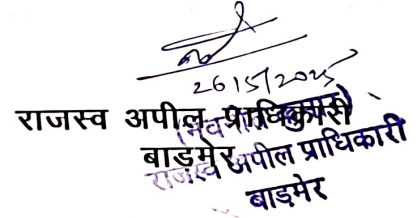 26/5/2025
राजस्व अपील प्राधिकारी
बाड़मेर
राजस्व अपील प्राधिकारी
बाड़मेर